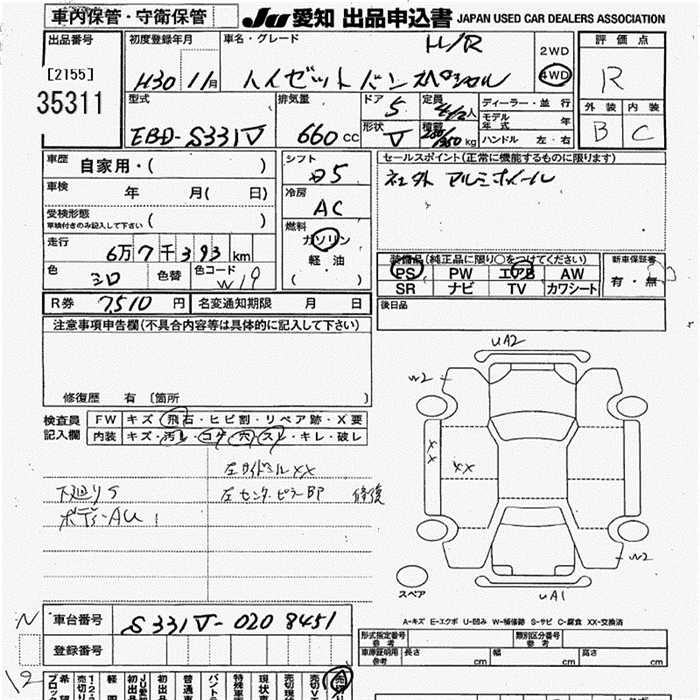 車内保管・守衛保管 JU愛知 出品申込書 JAPAN USED CAR DEALERS ASSOCIATION
出品番号 初度登録年月 車名・グレード H/R 2WD 評価点
[2155] H30 11月 ハイゼットバン スペシャル 4WD R
35311
型式 排気量 ドア 5 定員 4/2人 ディーラー・並行 外装 内装
EBD-S331V 660cc 形状 V 積載 kg モデル年式 年 B C
ハンドル 左・右
車歴 自家用・( ) シフト 5 セールスポイント(正常に機能するものに限ります)
車検 年 月( 日) 冷房 AC 社外アルミホイール
受検形態 車検付きのみ記入して下さい ( ) 燃料 ガソリン
走行 6万7千393km 軽油 装備品(純正品に限り○をつけてください) 新車保証書
色 シロ 色替 色コード W19 ( ) PS PW エアB AW 有・無
SR ナビ TV カワシート
R券 7510円 名変通知期限 月 日 後日品
注意事項申告欄(不具合内容等は具体的に記入して下さい)
UA2
W2
修復歴 有 〔箇所 〕
検査員記入欄 FW キズ・飛石・ヒビ割・リペア跡・X要
内装 キズ・汚レ・コゲ・穴・スレ・キレ・破レ
XX
XX
左サイドシルXX
下廻りS 左センターピラーBP 修復
ボディーAU1
W2
スペア UA1
A-キズ E-エクボ U-凹み W-補修跡 S-サビ C-腐食 XX-交換済
車台番号 S331V-0208451
形式指定番号 参考 類別区分番号 参考
登録番号
車庫証明用 参考 長さ cm 幅 cm 高さ cm